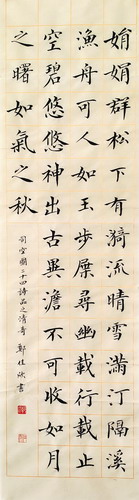 娟娟群松下有漪流晴雪滿汀隔溪
漁舟可人如玉步屧尋幽載行載止
空碧悠悠神出古異澹不可收如月
之曙如氣之秋
司空圖二十四詩品之清奇 鄭佳 書